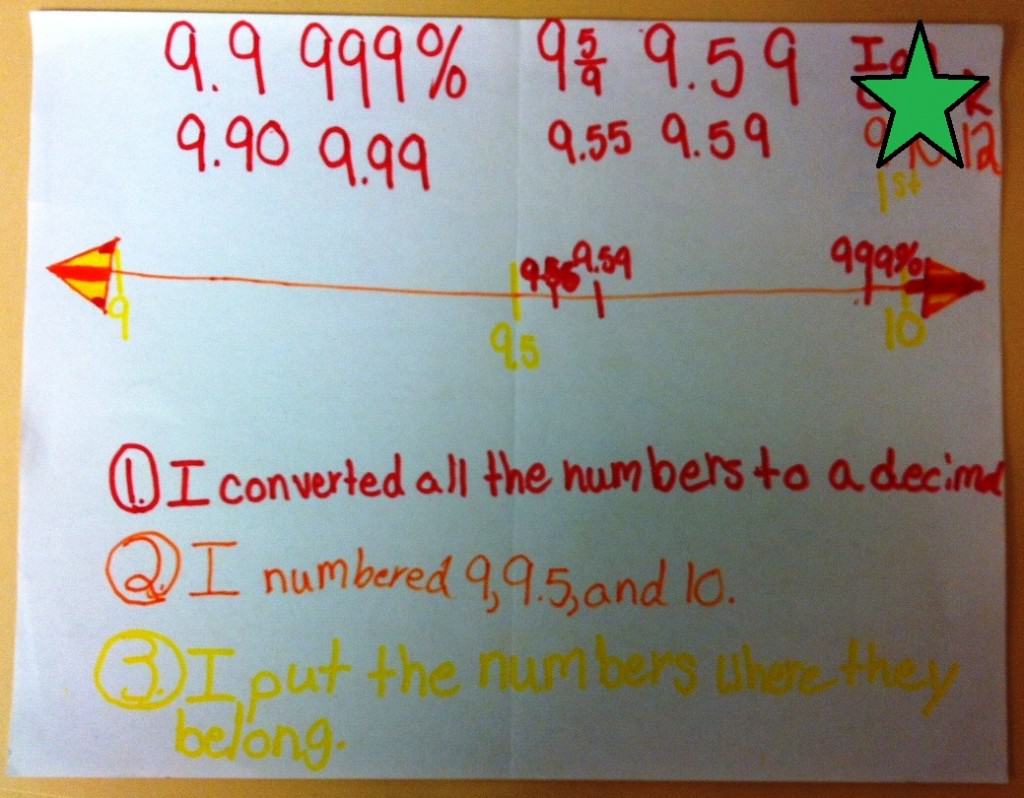 9.9 999% 9 5/9 9.59
9.90 9.99 9.55 9.59
12
1st
9.55 9.59 999%
9 9.5 10
1. I converted all the numbers to a decimal
2. I numbered 9, 9.5, and 10.
3. I put the numbers where they
belong.